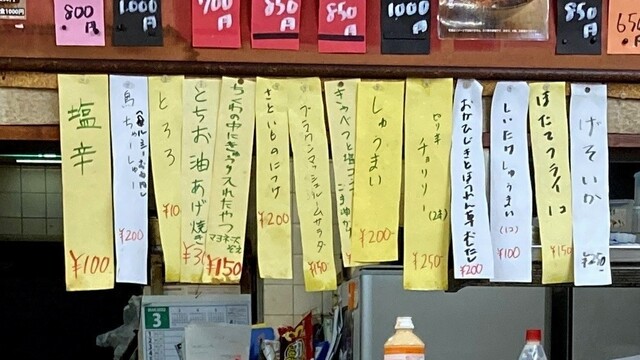 800円
1.000円
700円
850円
850円
1000円
850円
650円
塩辛
¥100
鳥ちゅーしゅー
¥200
とろろ
とちお油あげ焼き
ちくわの中にきゅうり入れたやつ
マヨネーズ
¥150
さといものにつけ
¥200
ブラウンマッシュルームサラダ
¥150
きゃべつと塩コンブ
ごま油
しゅうまい
¥200-
チョリソー
(2本)
¥250-
おかひじきとほうれん草おひたし
¥200
しいたけしゅうまい
(1コ)
¥100
ほたてフライ1コ
¥150
げそいか
¥250-
3